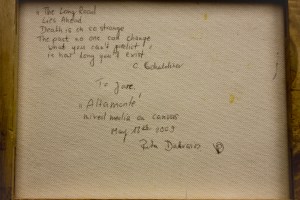 " The Long Road
Lies Ahead
Death is oh so strange
The past no one can change
what you can't predict
is how long you'll exist
C.
To Jose,
" Altamonte "
mixed media on canvas
May 18th 2009